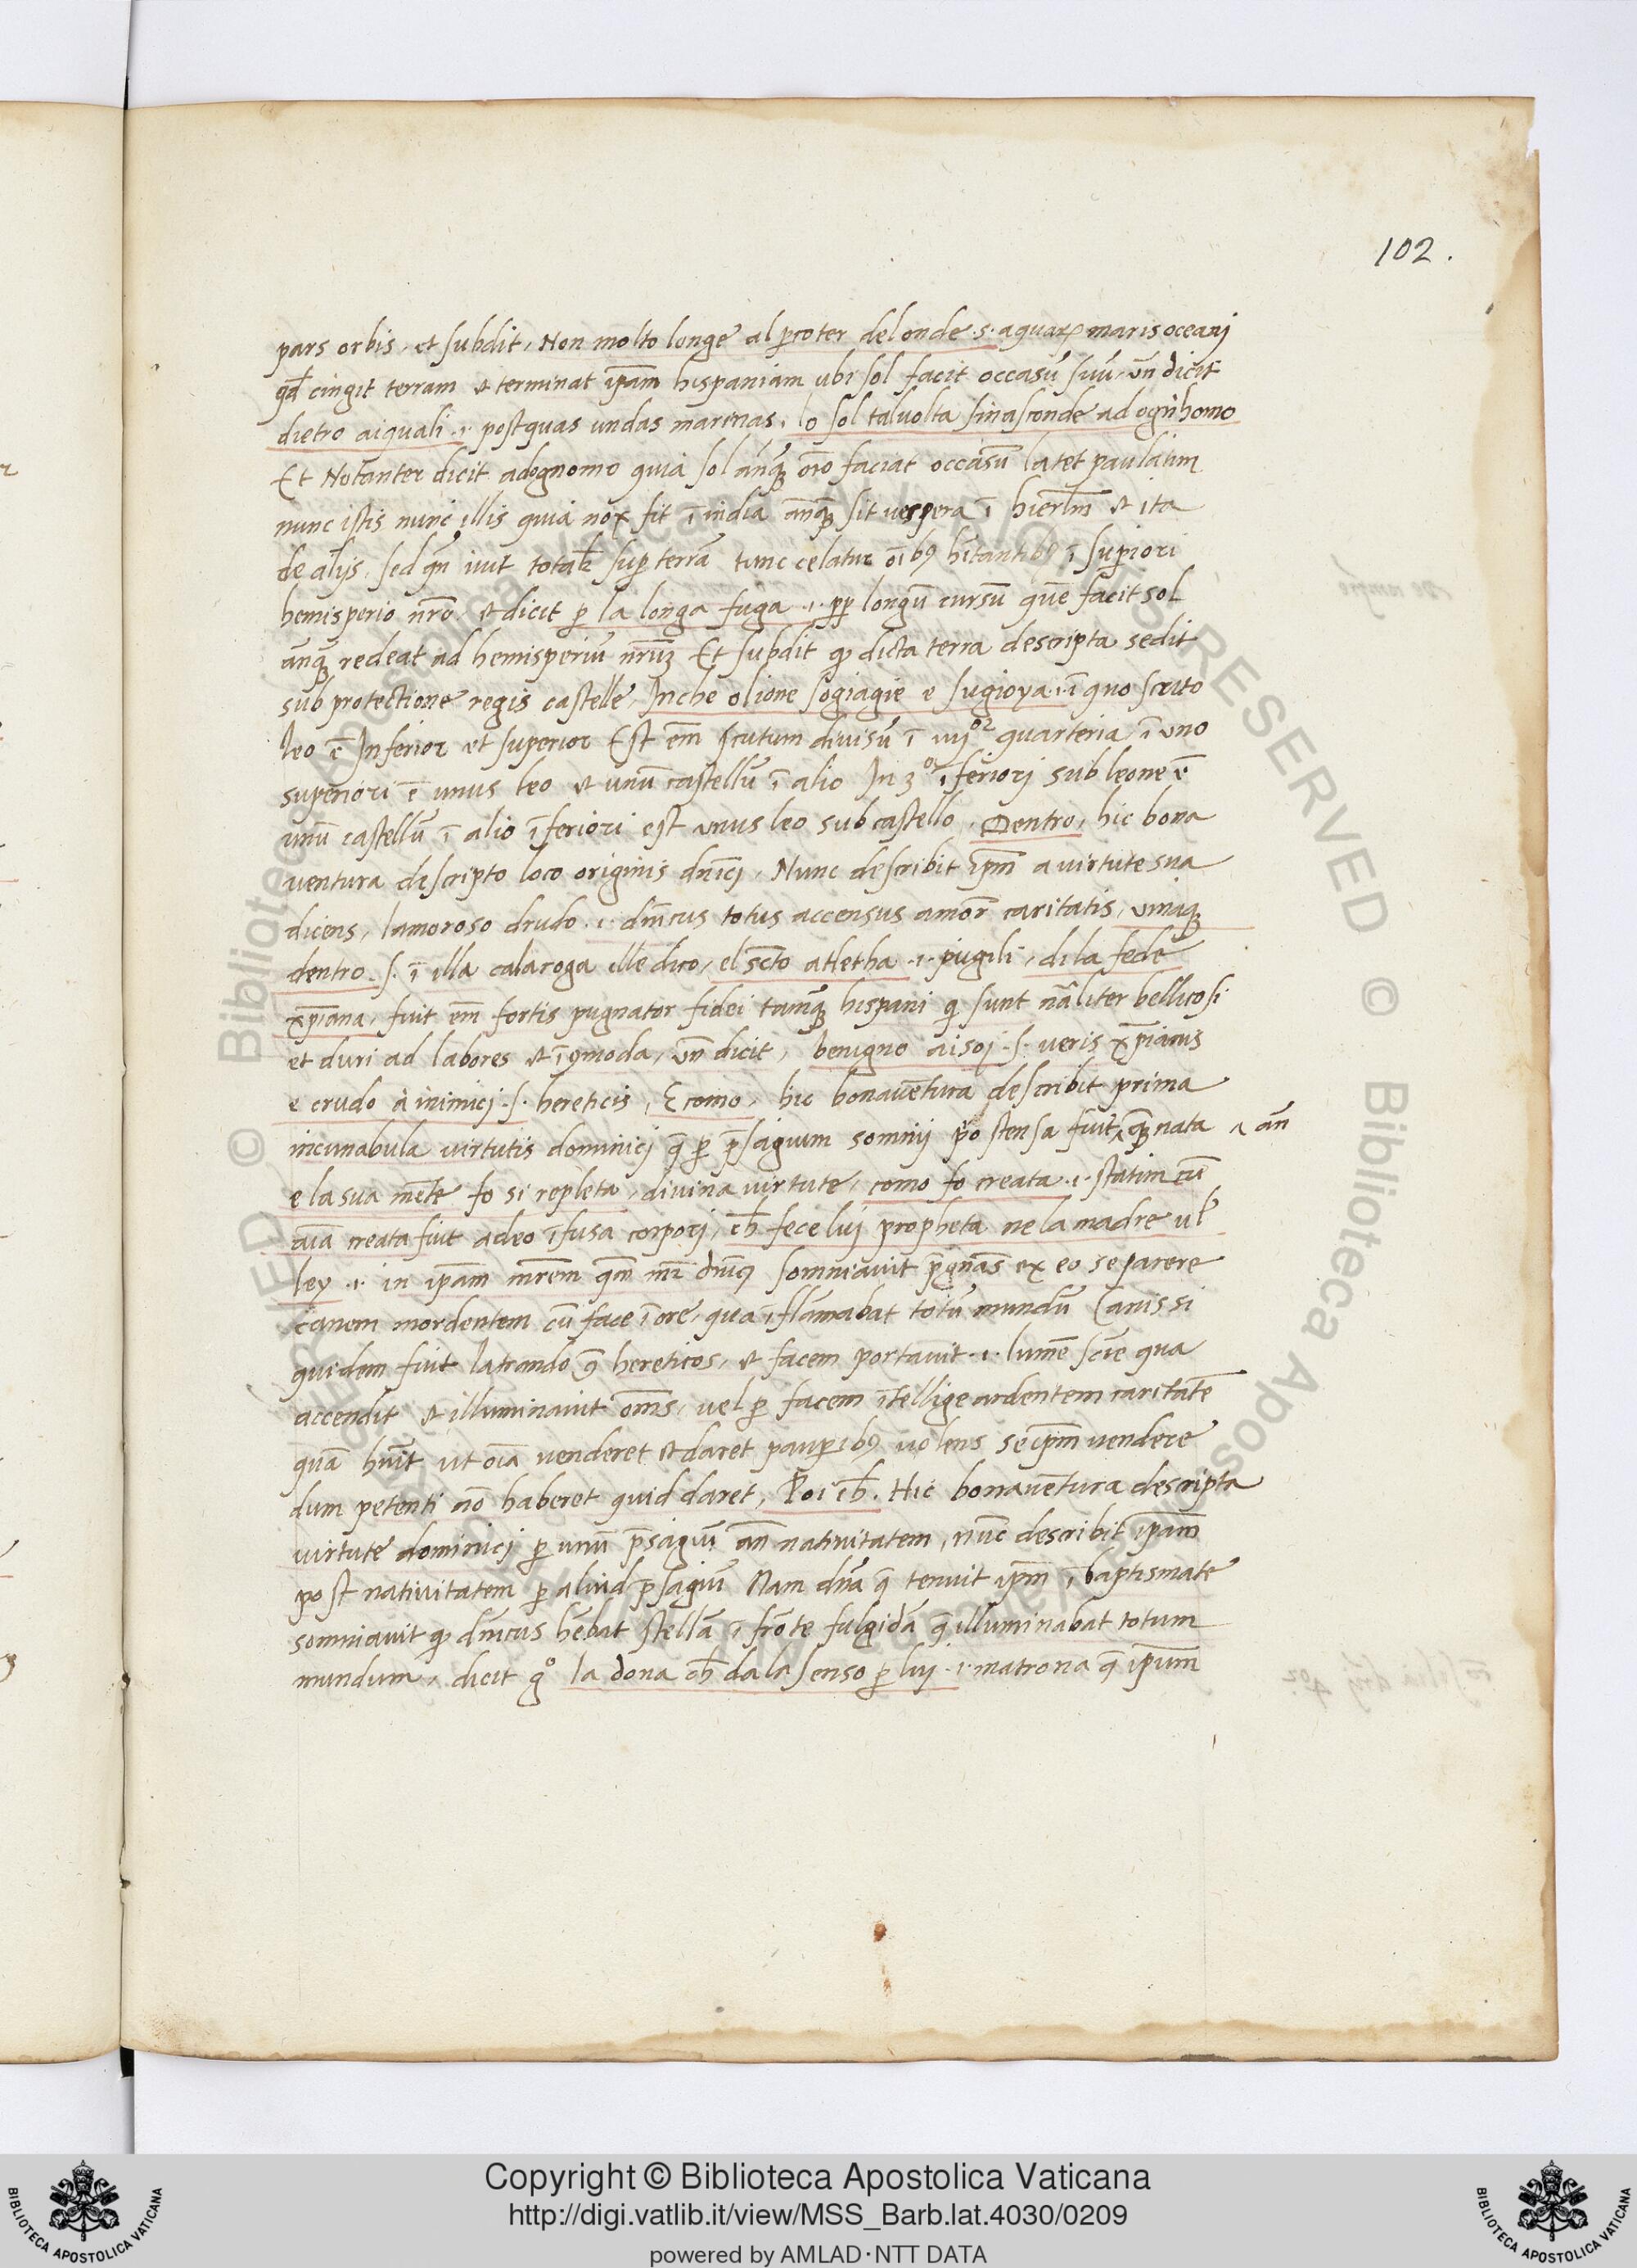 102.
pars orbis, et subdit, Non molto longe al p̱coter del onde .s. aquaꝝ maris oceanj
qd̃ cingit terram et terminat ip̃am hispaniam ubi sol facit occasũ suũ, un̄ dicit
dietro aiquali .i. post quas undas marinas, lo sol talvolta sinasconde ad ogn̄homo
Et Notanter dicit adognomo quia sol anq̃ȝ oĩno faciat occasũ latet paulatim
nunc istis nunc illis quia nox fit ĩ india anq̃ȝ sit vespera ĩ hierl̃m et ita
de alijs, sed qñ ivit total̃r sup̱ terrã tunc celatur oĩbꝰ hĩtantibꝰ ĩ sup̱iori
hemisperio nr̃o, et dicit p̱ la longa fuga .i. pp̱ longũ cursũ quẽ facit sol
anq̃ȝ redeat ad hemisperiũ nr̃uȝ Et subdit qꝫ dicta terra descripta sedit
sub protectione regis castelle, Inche olione sogiagie e sugioga .i. ĩ quo scuto
leo ẽ Inferior et superior Est em̃ scutum divisũ ĩ iiijoʳ quarteria ĩ uno
superiori ẽ unus leo et unũ castellũ ĩ alio In 3o ĩferiorj sub leone ẽ
unũ castellũ ĩ alio ĩferiori est unus leo sub castello, Dentro, hic bona
ventura descripto loco originis dn̄icj, Nunc describit ip̃m a virtute sua
dicens, lamoroso drudo .i. dn̄icus totus accensus amor̃ caritatis, vinaq̃ȝ
dentro .s. ĩ illa calaroga ille dico, el sct̃o atletha .i. pugili, dila fede
xp̃iana, fuit em̃ fortis pugnator fidei tanq̃ȝ hispani q̃ sunt nãliter bellicosi
et duri ad labores et ĩꝯmoda, un̄ dicit, benigno aisoj .s. veris xp̃ianis
e crudo à inimicj .s. hereticis, E como, hic bonavẽtura describit prima
incunabula virtutis dominicj q̃ p̱ p̃sagium somnij p̃ostensa fuit ‸ q̃ȝ nata ‸ an̄
e la sua mẽte fo si repleta, divina virtute, como fo creata .i. statim cũ
aĩa creata fuit adeo ĩfusa corporj, ch̃ fece luj propheta ne la madre ul̃
ley .i. in ip̃am mr̃em qm̃ mr̃ dn̄icj somniavit p̃gnãs ex eo se parere
canem mordentem cũ face ĩ ore, qua ĩflãmabat totũ mundũ Canis si
quidem fuit latrando ꝯ̃ hereticos, et facem portavit .i. lumẽ sciẽ qua
accendit et illuminavit om̃s, vel p̱ facem ĩtellige ardentem caritatẽ
quã hũit ut oĩa venderet et daret paup̱ibꝰ volens seip̃m vendere
dum petenti nõ haberet quid daret, Poi ch̃. Hic bonavẽtura descripta
virtute dominicj p̱ unũ p̃sagiũ an̄ nativitatem, nũc describit ip̃am
post nativitatem p̱ aliud p̃sagiũ Nam dñа q̃ tenuit ip̃m ĩ baptismate
somniavit qꝫ dn̄icus hẽbat stellã ĩ frõte fulgidã q̃ illuminabat totum
mundum, dicit gᵒ la dona ch̃ da la senso p̱ luj .i. matrona q̃ ip̃um
© Biblioteca Apostolica Vaticana
Copyright © Biblioteca Apostolica Vaticana
http://digi.vatlib.it/view/MSS_Barb.lat.4030/0209
powered by AMLAD·NTT DATA
BIBLIOTECA APOSTOLICA VATICANA
BIBLIOTECA APOSTOLICA VATICANA